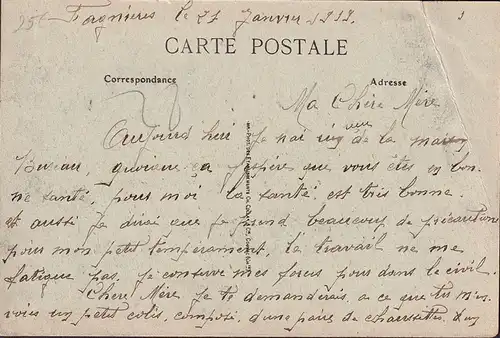 Fargnières le 27 Janvier 1919.
CARTE POSTALE
Correspondance
Adresse
Ma Chère Mère
Aujourd'hui Je nai rien de la maison
quoique ça Jespère que vous êtes en bon-
ne santé, pour moi la santé est très bonne
et aussi Je dirai que Je prend beaucoup de précautions
pour mon petit tempérament, le travail ne me
fatigue pas, Je conserve mes forces pour dans le civil.
Chère Mère Je te demanderais, a ce que tu m'en-
voies un petit colis, composé, d'une paire de chaussettes, d'un